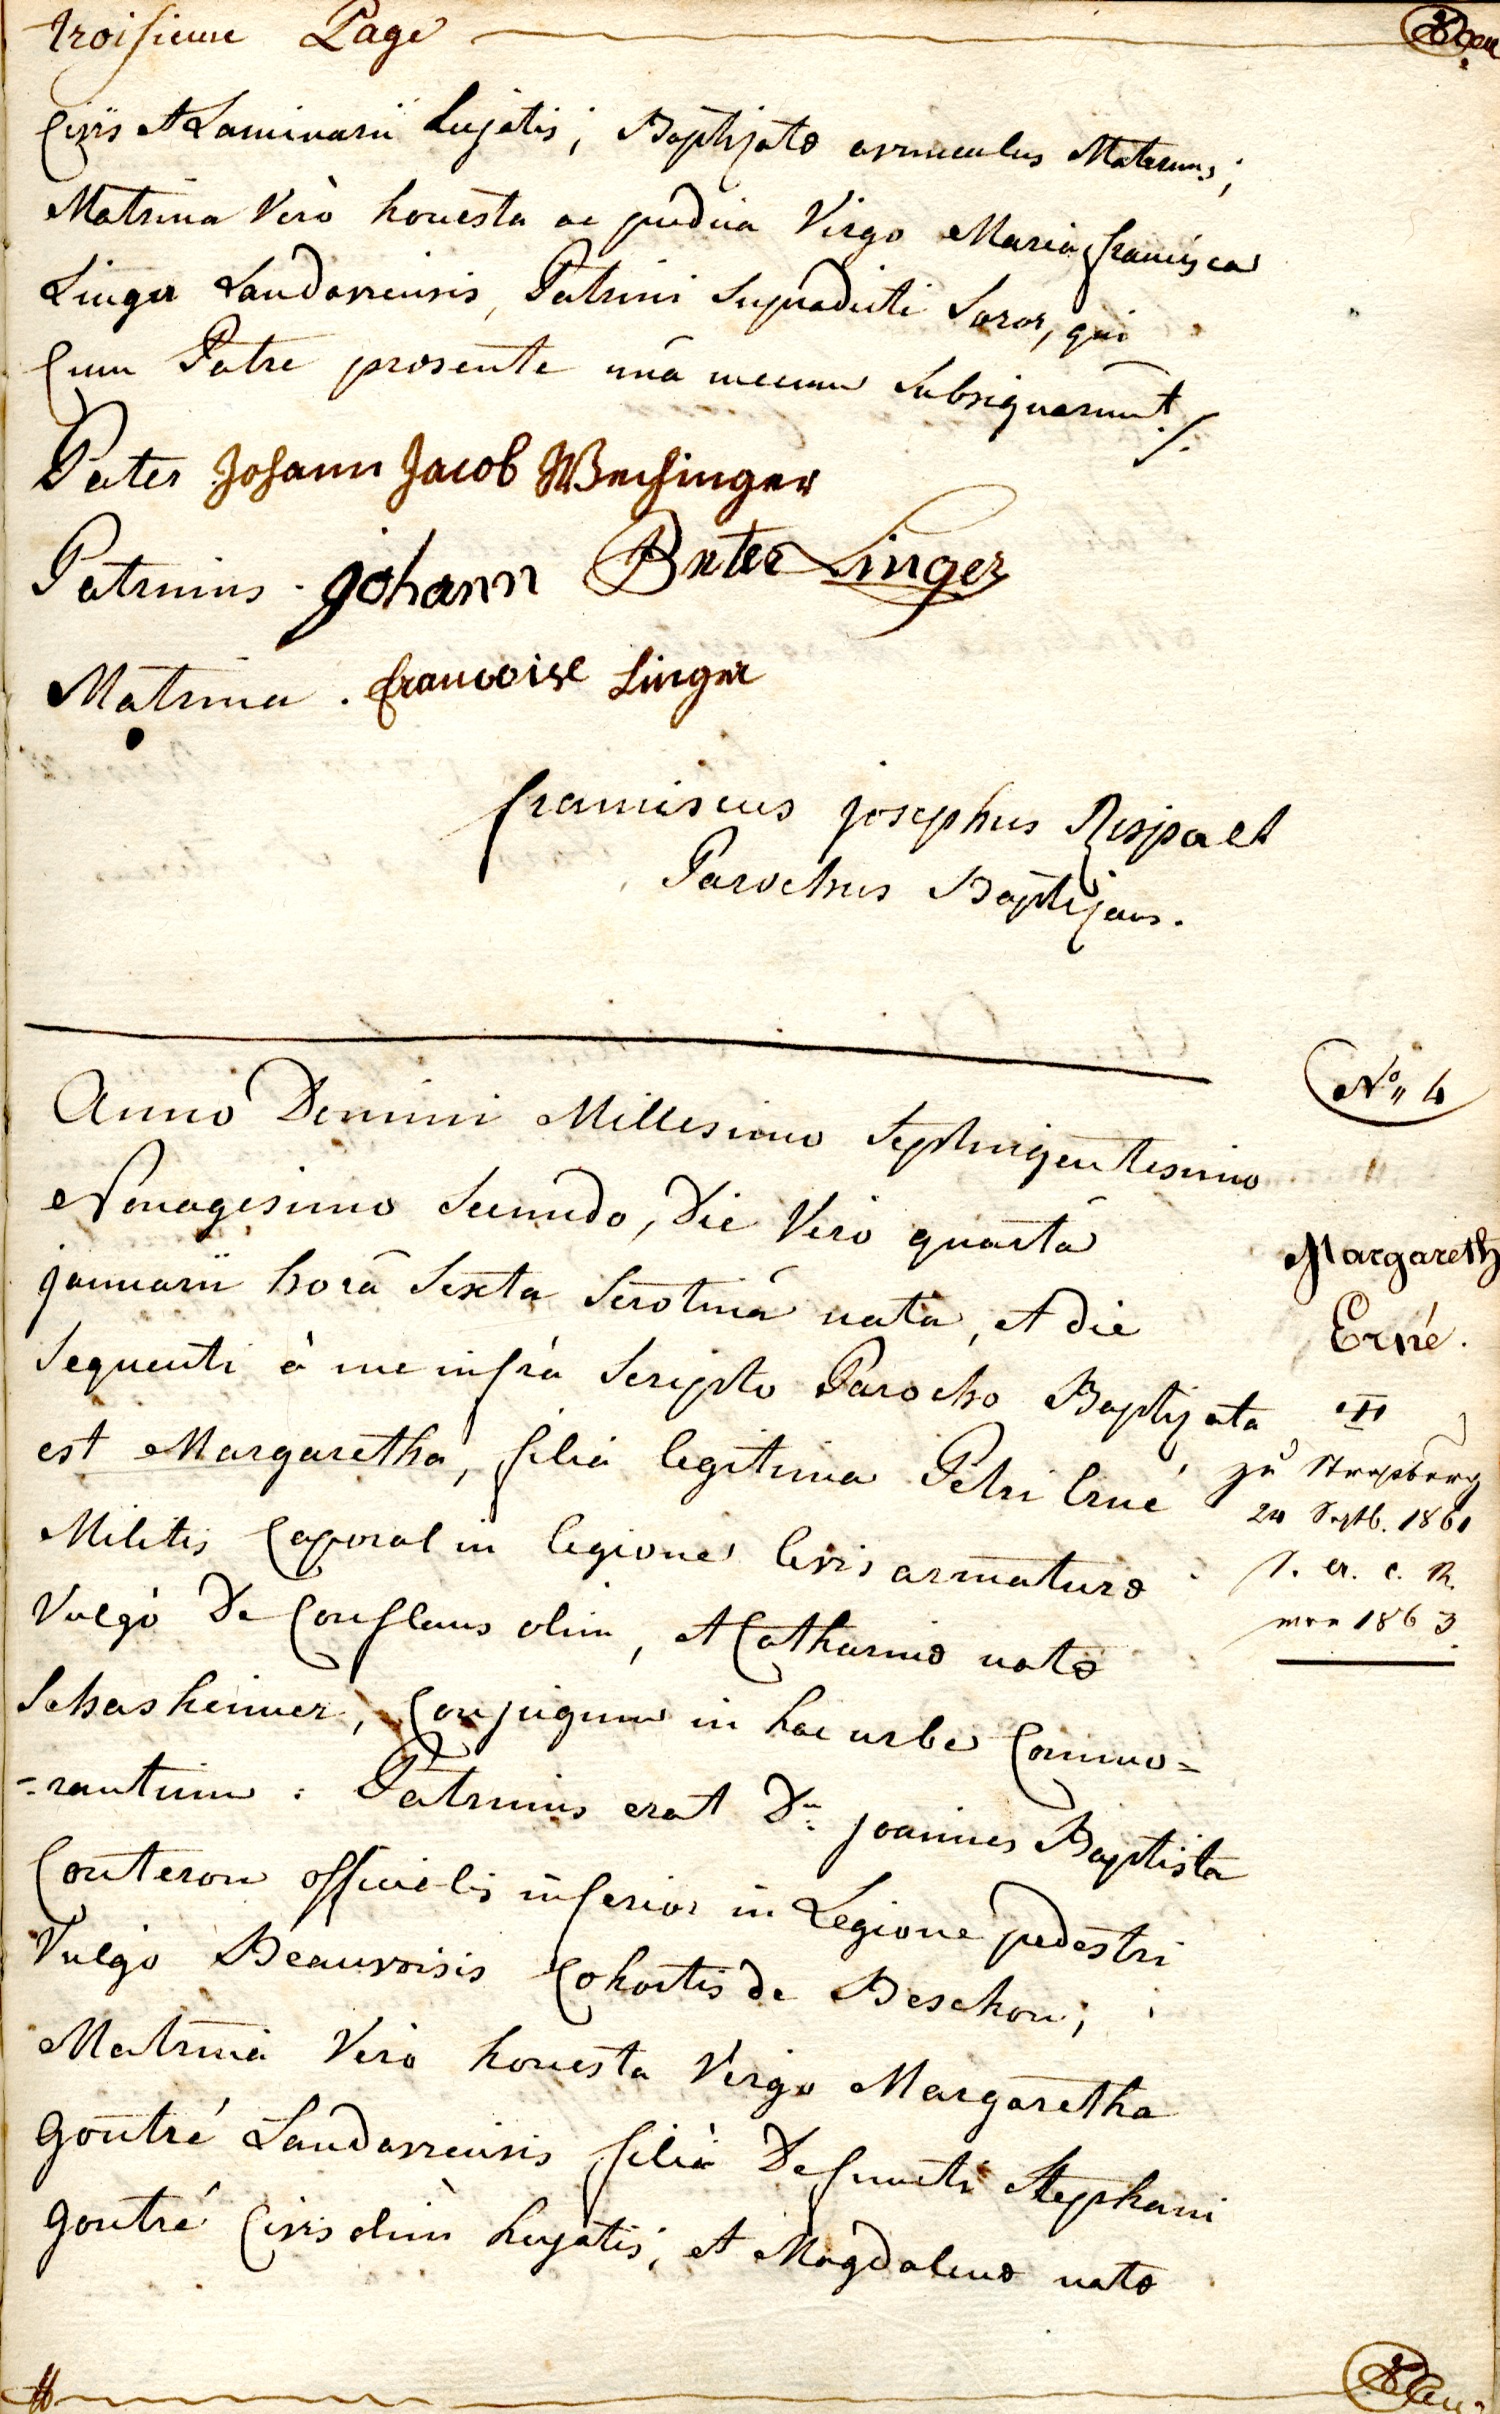 troisieme Page
Civis et Laminarii hujatis; Baptizatæ avunculus Maternus;
Matrina Verò honesta ac pudica Virgo Maria francisca
Linger Landaviensis, Patrini supradicti Soror, qui
Cum Patre præsente unâ mecum Subsignarunt ./.
Pater Johann Jacob
Patrinus . Johann Peter Linger
Matrina . francoise Linger
franciscus josephus
Parochus Baptizans.
Nº 4
Anno Domini Millesimo Septingentesimo
Nonagesimo Secundo, Die Verò quartâ
januarii horâ Sextâ Serotinâ nata, et die
Sequenti à me infrà Scripto Parocho Baptizata
est Margaretha, filia legitima Petri Erné
Militis Caporal in legione levis armaturæ
Vulgò De Conflans olim, et Catharinæ natæ
Schasheimer, Conjugum in hac urbe Commo=
=rantium : Patrinus erat Dn: joannes Baptista
Conteron officialis inferior in Legione pedestri
Vulgo Beauvoisis Cohortis de Beschon;
Matrina Verò honesta Virgo Margaretha
goutré Landaviensis filia Defuncti Stephani
goutré Civis olim hujatis, et Magdalenæ natæ
Margareth
Erné.
zu Strasburg
24 Septb. 1861
1863